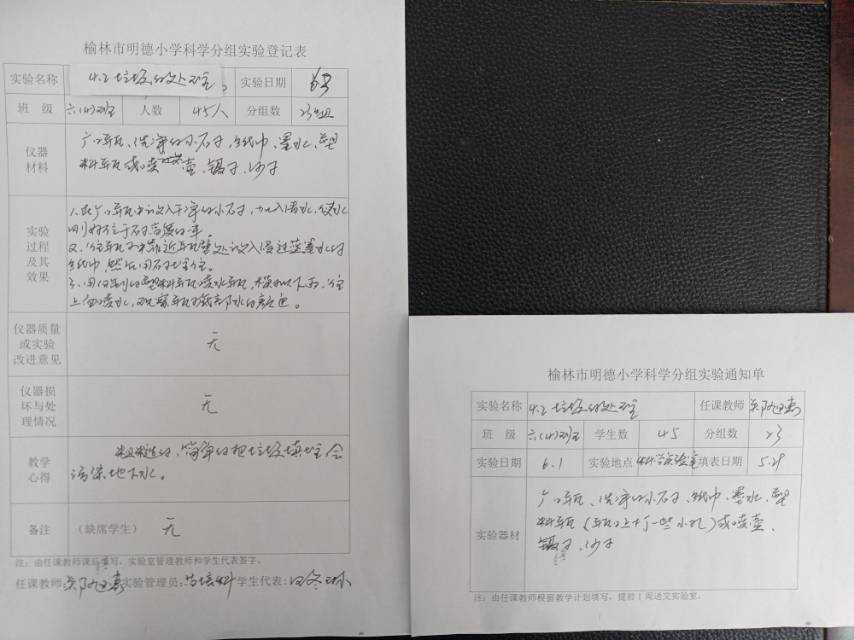 榆林市明德小学科学分组实验登记表
实验名称 4.2 垃圾的处理 实验日期
班 级 六(4)班 人数 45人 分组数 23组
仪器材料 广口瓶、洗净的小石子、纸巾、墨水、塑
料瓶或喷壶、镊子、沙子
实验过程及其效果
1.在广口瓶中放入干净的小石子,加入清水,使水
刚好位于石子高度的一半。
2.在瓶子靠近瓶壁处放入浸过蓝墨水的
纸巾,然后用石子埋住。
3.用自制的塑料瓶喷水瓶,模拟下雨,在
上面喷水,观察瓶子底部水的颜色。
仪器质量或实验改进意见 无
仪器损坏与处理情况 无
教学心得 简单的把垃圾填埋会
污染地下水。
备注 (缺席学生) 无
注:由任课教师课后填写,实验室管理教师和学生代表签字。
任课教师: 实验管理员: 学生代表:
榆林市明德小学科学分组实验通知单
实验名称 4.2 垃圾的处理 任课教师
班 级 六(4)班 学生数 45 分组数 23
实验日期 6.1 实验地点 科学实验室 填表日期 5.29
实验器材 广口瓶、洗净的小石子、纸巾、墨水、塑
料瓶(瓶口上扎一些小孔)或喷壶、
镊子、沙子
注:由任课教师根据教学计划填写,提前1周送交实验室。